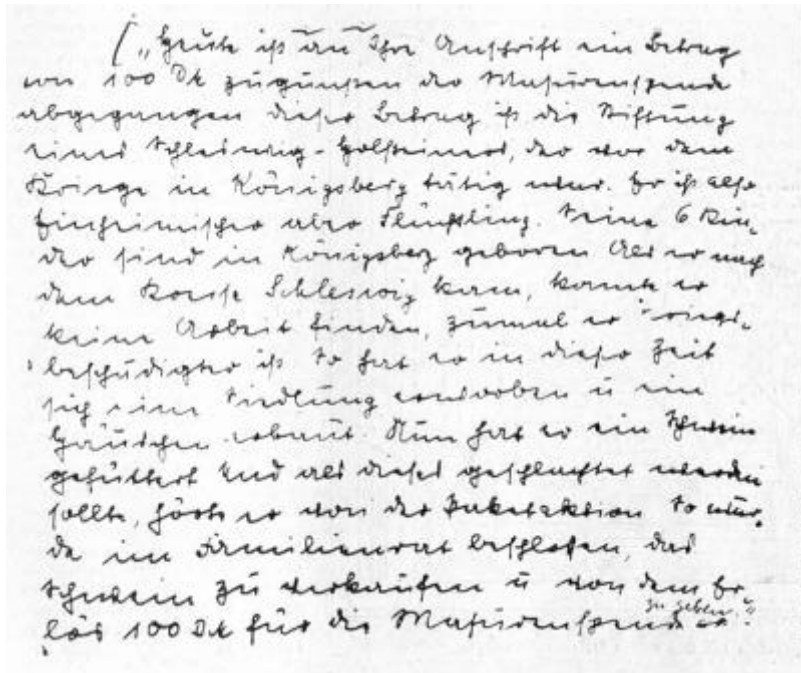 [ „Heute ist an Ihre Anschrift ein Betrag
von 100 DM zugunsten der Masurenspende
abgegangen dieser Betrag ist die Stiftung
eines Schleswig-Holsteiners, der vor dem
Kriege in Königsberg tätig war. Er ist also
Einheimischer aber Flüchtling. Seine 6 Kin-
der sind in Königsberg geboren Als er nach
dem Kreise Schleswig kam, konnte er
keine Arbeit finden, zumal er Kriegs-
beschädigter ist So hat er in dieser Zeit
sich eine Siedlung erworben u ein
Häuschen erbaut. Nun hat er ein Schwein
gefüttert und als dieses geschlachtet werden
sollte, hörte er von der Paketaktion So wur-
de im Familienrat beschlossen, das
Schwein zu verkaufen u von dem Er-
lös 100 DM für die Masurenspende zu geben."